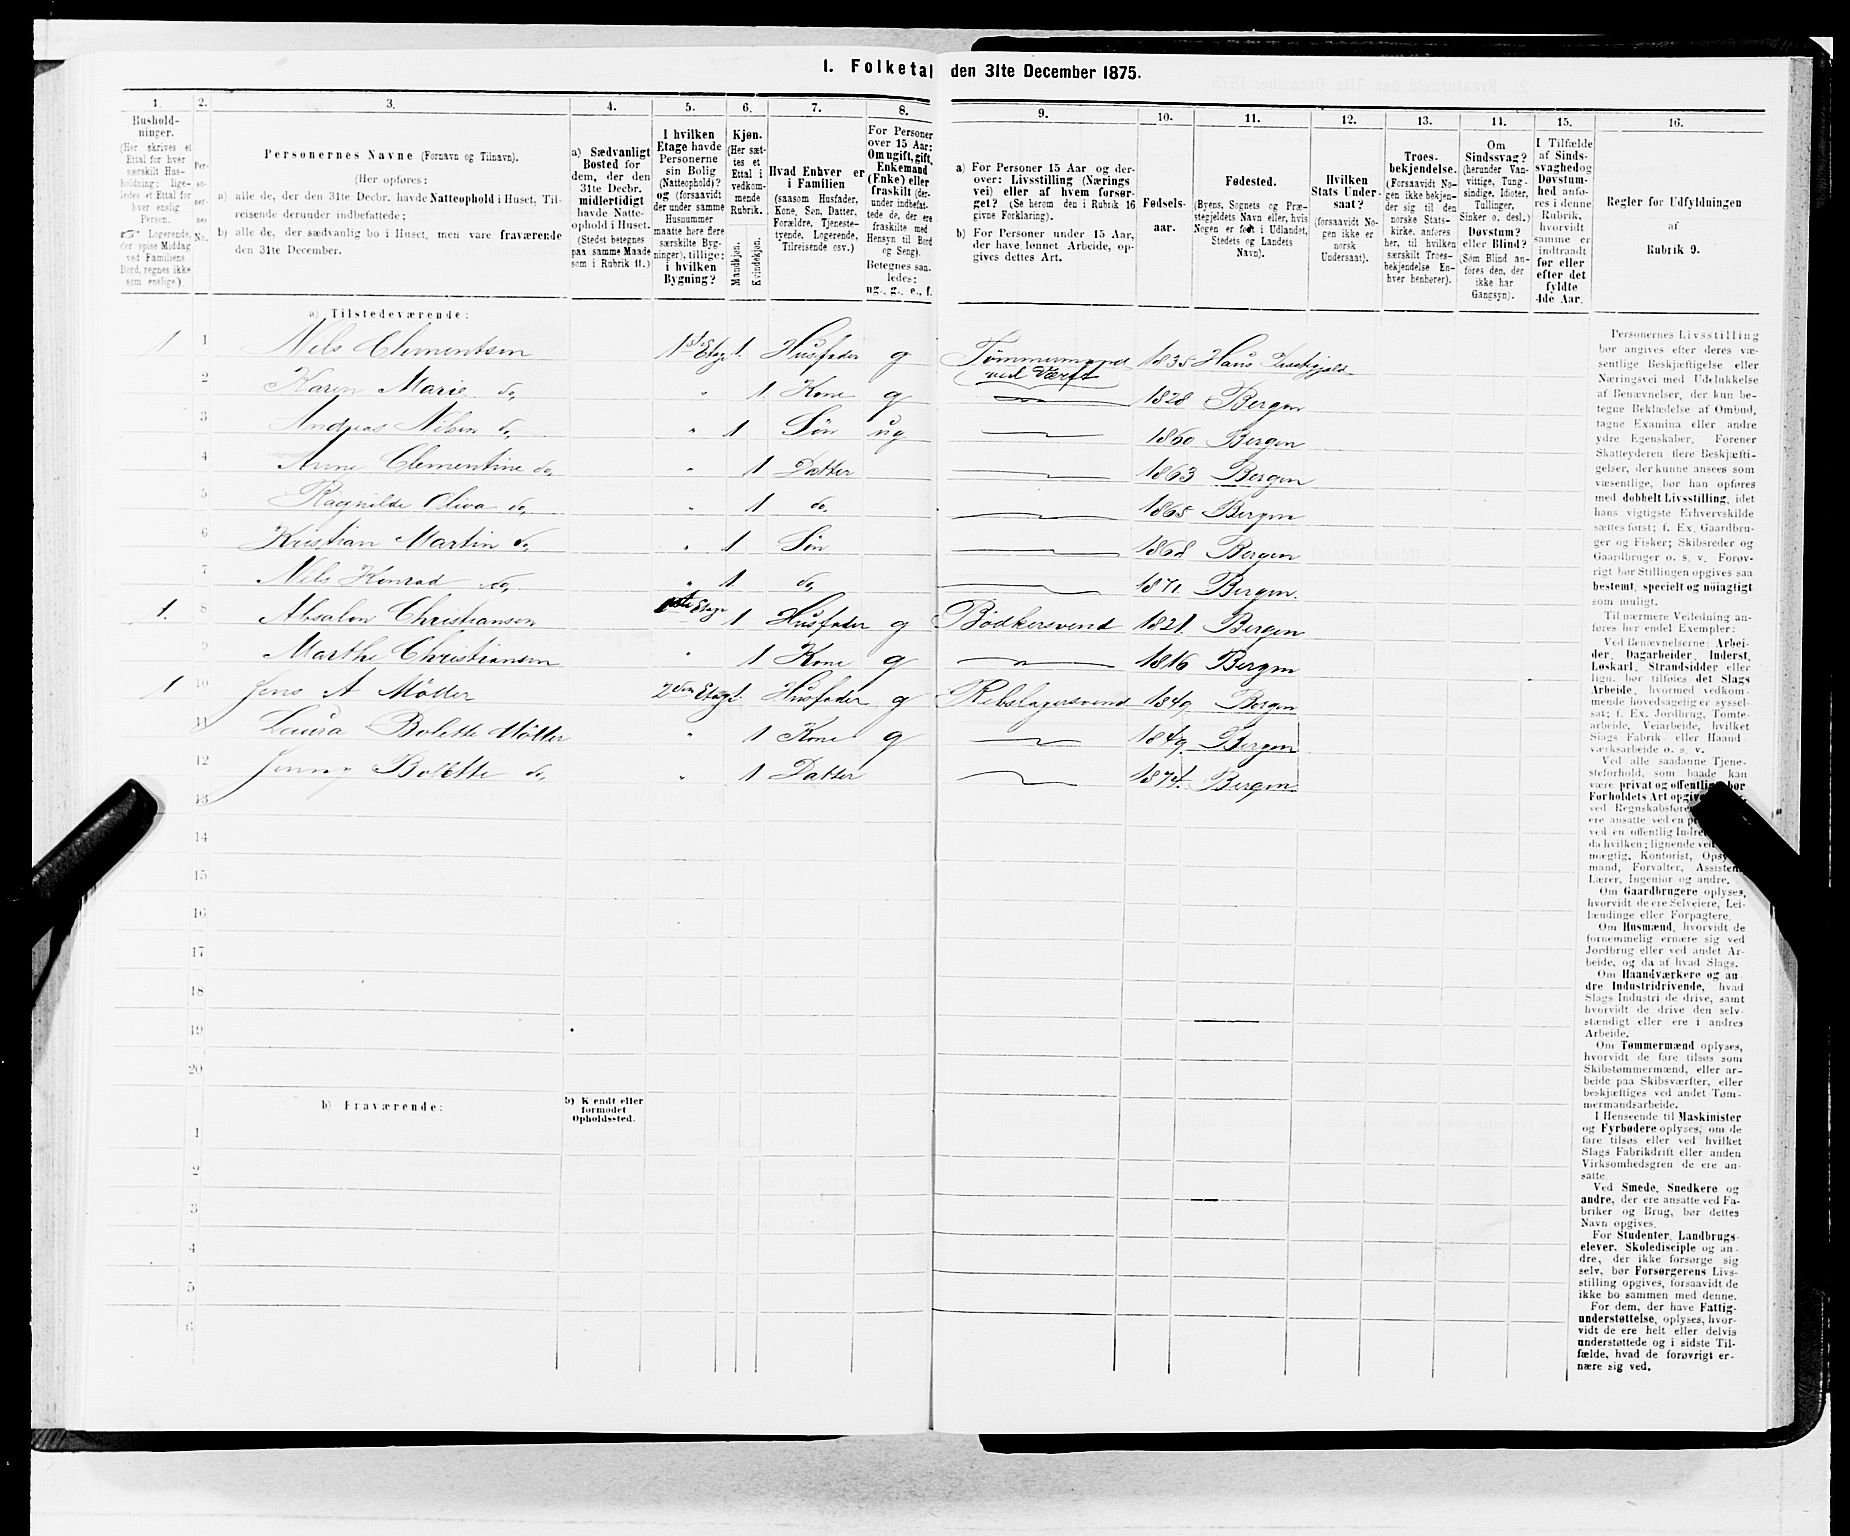 1. Folketal den 31te December 1875.
1. 2. 3. 4. 5. 6. 7. 8. 9. 10. 11. 12. 13. 14. 15. 16.
Hushold-
ninger.
(Her skrives et
Ettal for hver
særskilt Hus-
holdning; lige-
ledes et Ettal for
hver enslig
Person.
☞ Logerende,
der spise Middag
ved Familiens
Bord, regnes ikke
som enslige).
Per-
so-
ner-
nes
No.
Personernes Navne (Fornavn og Tilnavn).
(Her opføres:
a) alle de, der den 31te Decbr. havde Natteophold i Huset, Til-
reisende derunder indbefattede;
b) alle de, der sædvanlig bo i Huset, men vare fraværende
den 31te December.
a) Sædvanligt
Bosted for
dem, der den
31te Decbr.
midlertidigt
havde Natte-
ophold i Huset.
(Stedet betegnes
paa samme Maade
som i Rubrik 11.)
I hvilken
Etage havde
Personerne
sin Bolig
(Natteophold)?
og (forsaavidt
der under samme
Husnummer
maatte høre flere
særskilte Byg-
ninger), tillige:
i hvilken
Bygning?
Kjøn.
(Her sæt-
tes et
Ettal i
vedkom-
mende
Rubrik.
Mandkjøn.
Kvindekjøn.
Hvad Enhver er
i Familien
(saasom Husfader,
Kone, Søn, Datter,
Forældre, Tjeneste-
tyende, Logerende,
Tilreisende osv.)
For Personer
over 15 Aar:
Om ugift, gift,
Enkemand
(Enke) eller
fraskilt (der-
under indbefat-
tede de, der ere
fraskilte med
Hensyn til Bord
og Seng).
Betegnes saa-
ledes:
ug., g., e., f.
a) For Personer 15 Aar og der-
over: Livsstilling (Nærings
vei) eller af hvem forsør-
get? (Se herom den i Rubrik 16
givne Forklaring).
b) For Personer under 15 Aar,
der have lønnet Arbeide, op-
gives dettes Art.
Fødsels-
aar.
Fødested.
(Byens, Sognets og Præ-
stegjeldets Navn eller, hvis
Nogen er født i Udlandet,
Stedets og Landets
Navn).
Hvilken
Stats Under-
saat?
(forsaavidt No-
gen ikke er
norsk
Undersaat).
Troes-
bekjendelse.
(Forsaavidt No-
gen ikke bekjen-
der sig til den
norske Stats-
kirke, anføres
her, til hvilken
særskilt Troes-
bekjendelse En-
hver henhører).
Om
Sindssvag?
(herunder Van-
vittige, Tung-
sindige, Idioter,
Tullinger,
Sinker o. desl.)
Døvstum?
eller Blind?
(Som Blind an-
føres den, der
ikke har
Gangsyn).
I Tilfælde
af Sinds-
svaghed og
Døvstum-
hed anfø-
res i denne
Rubrik,
hvorvidt
samme er
indtraadt
før eller
efter det
fyldte
4de Aar.
Regler for Udfyldningen
af
Rubrik 9.
a) Tilstedeværende:
1 1 Nils Clementsen 1ste Etage 1. Husfader g Tømmermand ved Værft 1835 Haus Præstegjeld
2 Karen Marie do, " 1 Kone g 1828 Bergen
3 Andreas Nilsen do, " 1 Søn ug 1860 Bergen
4 Anne Clementine do, " 1 Datter 1863 Bergen
5 Ragnilde Oliva do, " 1 do, 1865 Bergen
6 Kristian Martin do, " 1 Søn 1868 Bergen
7 Nils Konrad do, " 1 do, 1871. Bergen.
1. 8 Absalon Christiansen 1ste Etage 1 Husfader g Bødkersvend 1821. Bergen
9 Marthe Christiansen " 1 Kone g 1816 Bergen
1 10 Jens A Møller 2den Etage 1. Husfader g Rebslagersvend 1849 Bergen
11 Laura Bolette Møller " 1 Kone g 1849 Bergen
12 Jenny Bolette do, " 1 Datter 1874. Bergen
13
14
15
16
17
18
19
20
b) Fraværende: b) Kjendt eller
formodet
Opholdssted.
1
2
3
4
5
6
Personernes Livsstilling
bør angives efter deres væ-
sentlige Beskjæftigelse eller
Næringsvei med Udelukkelse
af Benævnelser, der kun be-
tegne Beklædelse af Ombud,
tagne Examina eller andre
ydre Egenskaber. Forener
Skatteyderen flere Beskjæfti-
gelser, der kunne ansees som
væsentlige, bør han opføres
med dobbelt Livsstilling, idet
hans vigtigste Erhvervskilde
sættes først; f. Ex. Gaardbru-
ger og Fisker; Skibsreder og
Gaardbruger o. s. v. Forøv-
rigt bør Stillingen opgives saa
bestemt, specielt og nøiagtigt
som muligt.
Til nærmere Veiledning an-
føres her endel Exempler:
Ved Benævnelserne: Arbei-
der, Dagarbeider, Inderst,
Løskarl, Strandsidder eller
lign. bør tilføies det Slags
Arbeide, hvormed vedkom-
mende hovedsagelig er syssel-
sat; f. Ex. Jordbrug, Tomte-
arbeide, Veiarbeide, hvilket
Slags Fabrik- eller Haand-
værksarbeide o. s. v.
Ved alle saadanne Tjene-
steforhold, som baade kan
være privat og offentligt, bør
Forholdets Art opgives,
ved Regnskabsføre
ere ansatte ved en p
ved en offentlig Indre
da hvilken; lignende ved
mægtig, Kontorist, Opsy
mand, Forvalter, Assistent
Lærer, Ingeniør og andre.
Om Gaardbrugere oplyses,
hvorvidt de ere Selveiere, Lei-
lændinge eller Forpagtere.
Om Husmænd, hvorvidt de
fornemmelig ernære sig ved
Jordbrug eller ved andet Ar-
beide, og da af hvad Slags.
Om Haandværkere og an-
dre Industridrivende, hvad
Slags Industri de drive, samt
hvorvidt de drive den selv-
stændigt eller ere i andres
Arbeide.
Om Tømmermænd oplyses,
hvorvidt de fare tilsøs som
Skibstømmermænd, eller ar-
beide paa Skibsværfter, eller
beskjæftiges ved andet Tøm-
mermandsarbeide.
I Henseende til Maskinister
og Fyrbødere oplyses, om de
fare tilsøs eller ved hvilket
Slags Fabrikdrift eller anden
Virksomhedsgren de ere an-
satte.
Ved Smede, Snedkere og
andre, der ere ansatte ved Fa-
briker og Brug, bør dettes
Navn opgives.
For Studenter, Landbrugs-
elever, Skoledisciple og an-
dre, der ikke forsørge sig
selv, bør Forsørgerens Livs-
stilling opgives, forsaavidt de
ikke bo sammen med denne.
For dem, der have Fattig-
understøttelse, oplyses, hvor-
vidt de ere helt eller delvis
understøttede og i sidste Til-
fælde, hvad de forøvrigt er-
nære sig ved.